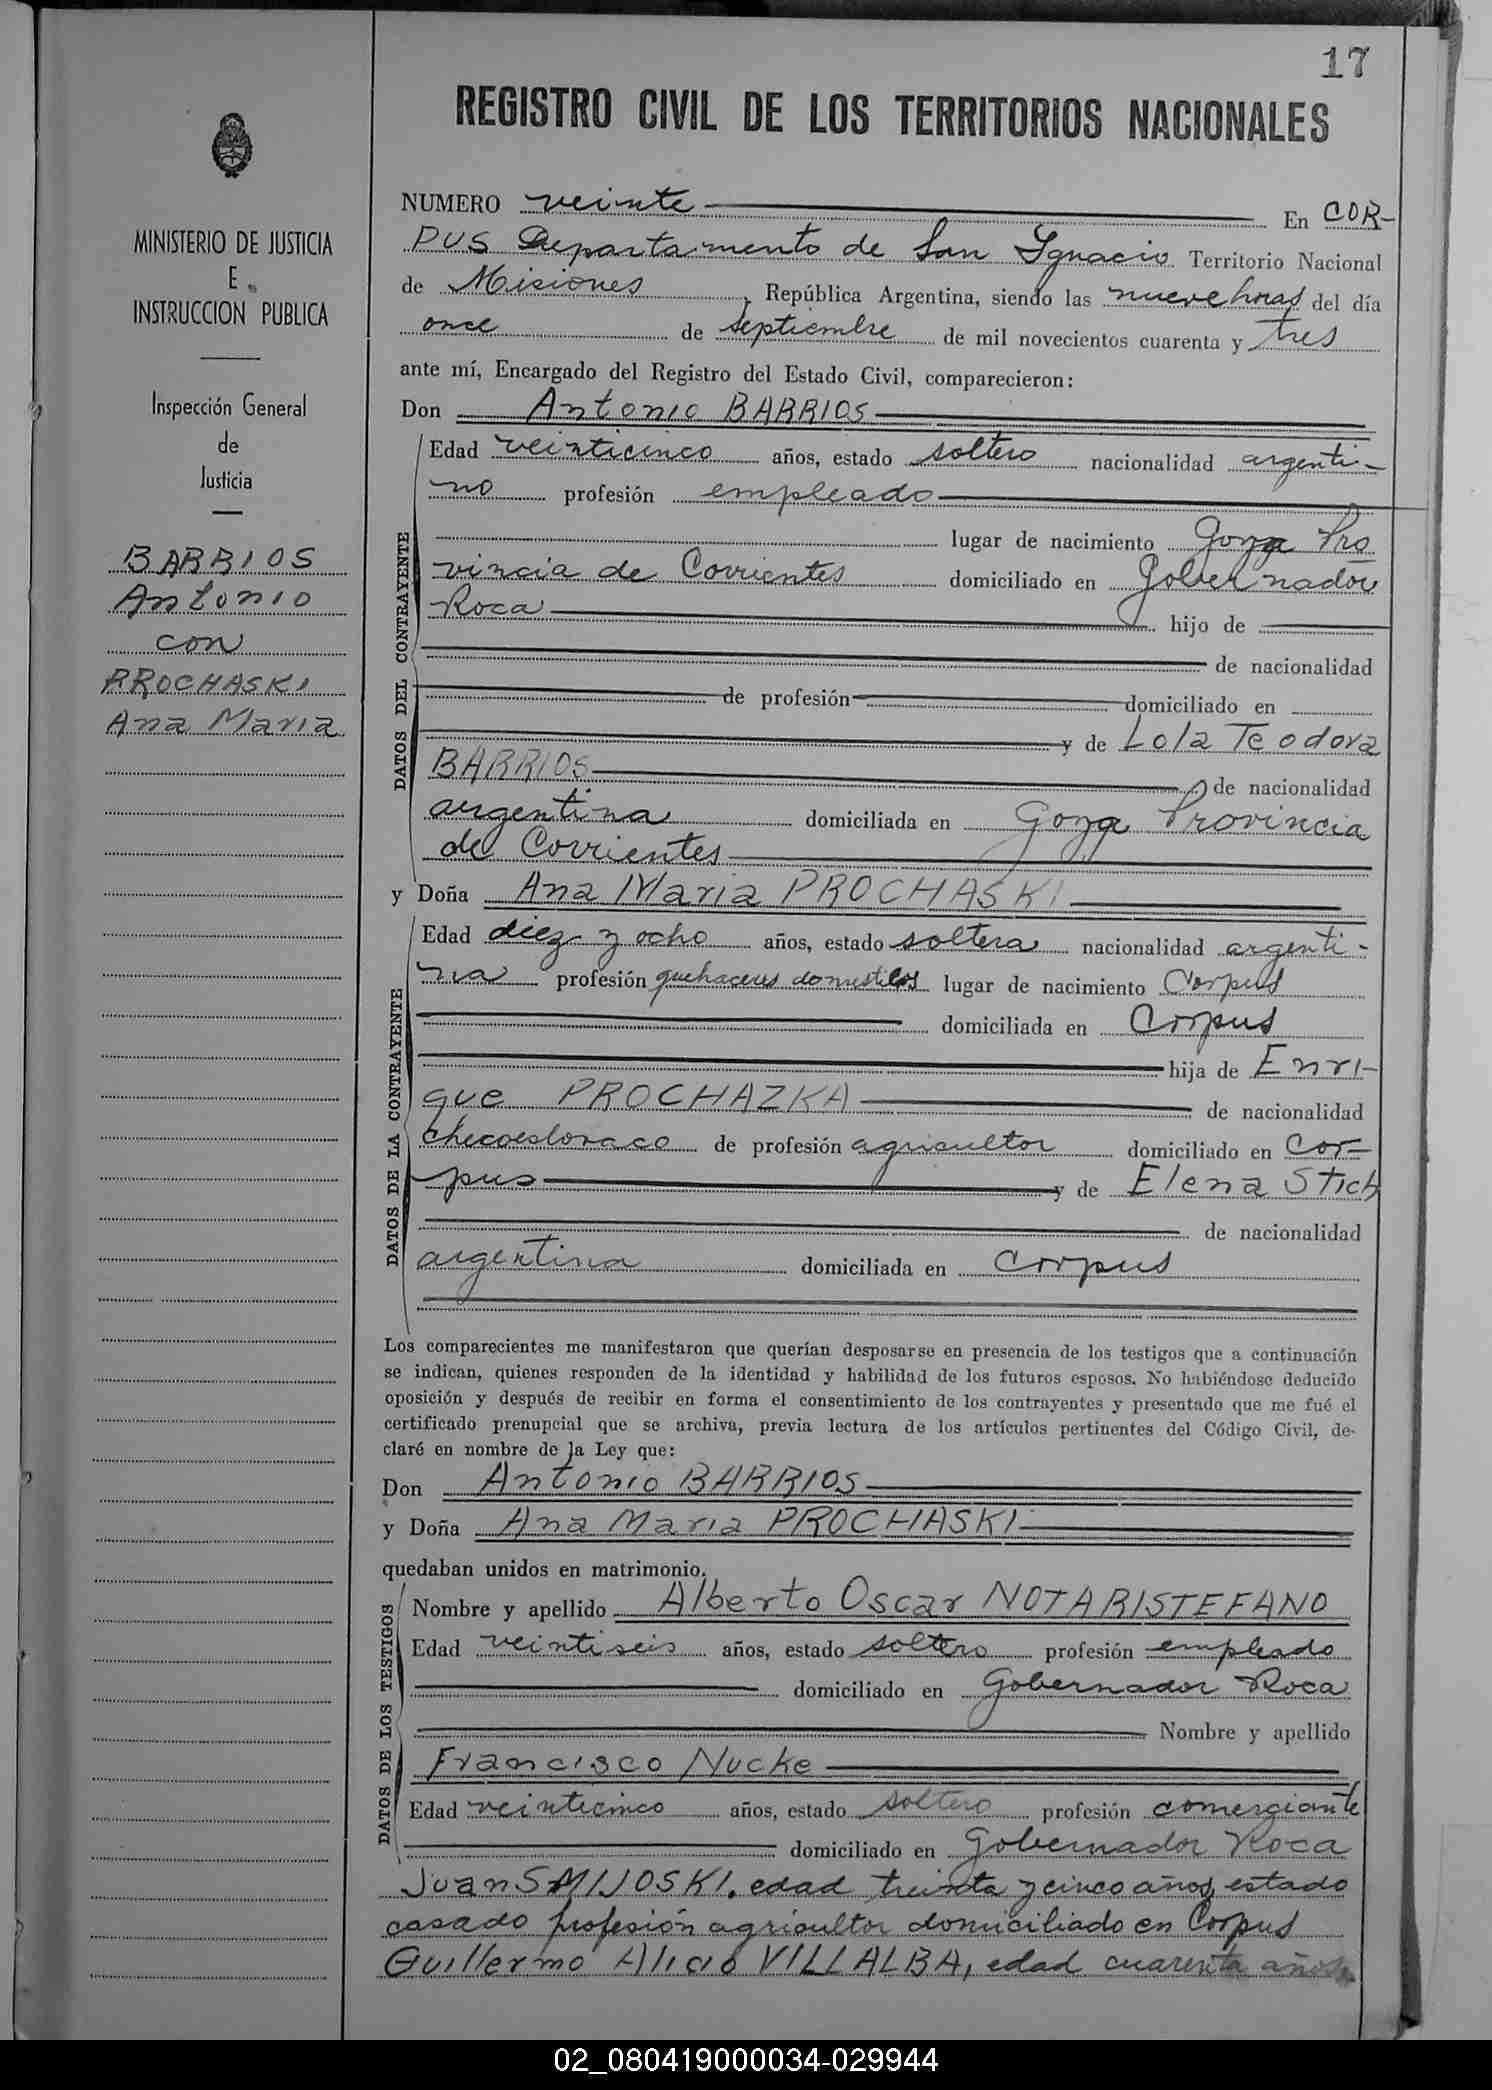 17
REGISTRO CIVIL DE LOS TERRITORIOS NACIONALES
MINISTERIO DE JUSTICIA
E
INSTRUCCION PUBLICA
Inspección General
de
Justicia
BARRIOS
Antonio
con
PROCHASKI
Ana Maria
NUMERO veinte En COR-
PUS Departamento de San Ignacio Territorio Nacional
de Misiones, República Argentina, siendo las nueve horas del día
once de septiembre de mil novecientos cuarenta y tres
ante mí, Encargado del Registro del Estado Civil, comparecieron:
Don Antonio BARRIOS
DATOS DEL CONTRAYENTE
Edad veinticinco años, estado soltero nacionalidad argenti-
no profesión empleado
lugar de nacimiento Goya Pro
vincia de Corrientes domiciliado en Gobernador
Roca hijo de
de nacionalidad
de profesión domiciliado en
y de Lola Teodora
BARRIOS de nacionalidad
argentina domiciliada en Goya Provincia
de Corrientes
y Doña Ana Maria PROCHASKI
DATOS DE LA CONTRAYENTE
Edad diez y ocho años, estado soltera nacionalidad argenti-
na profesión quehaceres domesticos lugar de nacimiento Corpus
domiciliada en Corpus
hija de Enri-
que PROCHAZKA de nacionalidad
checoeslovaco de profesión agricultor domiciliado en Cor-
pus y de Elena Stich
de nacionalidad
argentina domiciliada en Corpus
Los comparecientes me manifestaron que querían desposarse en presencia de los testigos que a continuación
se indican, quienes responden de la identidad y habilidad de los futuros esposos. No habiéndose deducido
oposición y después de recibir en forma el consentimiento de los contrayentes y presentado que me fué el
certificado prenupcial que se archiva, previa lectura de los artículos pertinentes del Código Civil, de-
claré en nombre de la Ley que:
Don Antonio BARRIOS
y Doña Ana Maria PROCHASKI
quedaban unidos en matrimonio.
DATOS DE LOS TESTIGOS
Nombre y apellido Alberto Oscar NOTARISTEFANO
Edad veintiseis años, estado soltero profesión empleado
domiciliado en Gobernador Roca
Nombre y apellido
Francisco Nucke
Edad veinticinco años, estado soltero profesión comerciante
domiciliado en Gobernador Roca
Juan SMIJOSKI. edad treinta y cinco años, estado
casado profesión agricultor domiciliado en Corpus
Guillermo Alicio VILLALBA, edad cuarenta años
02_080419000034-029944